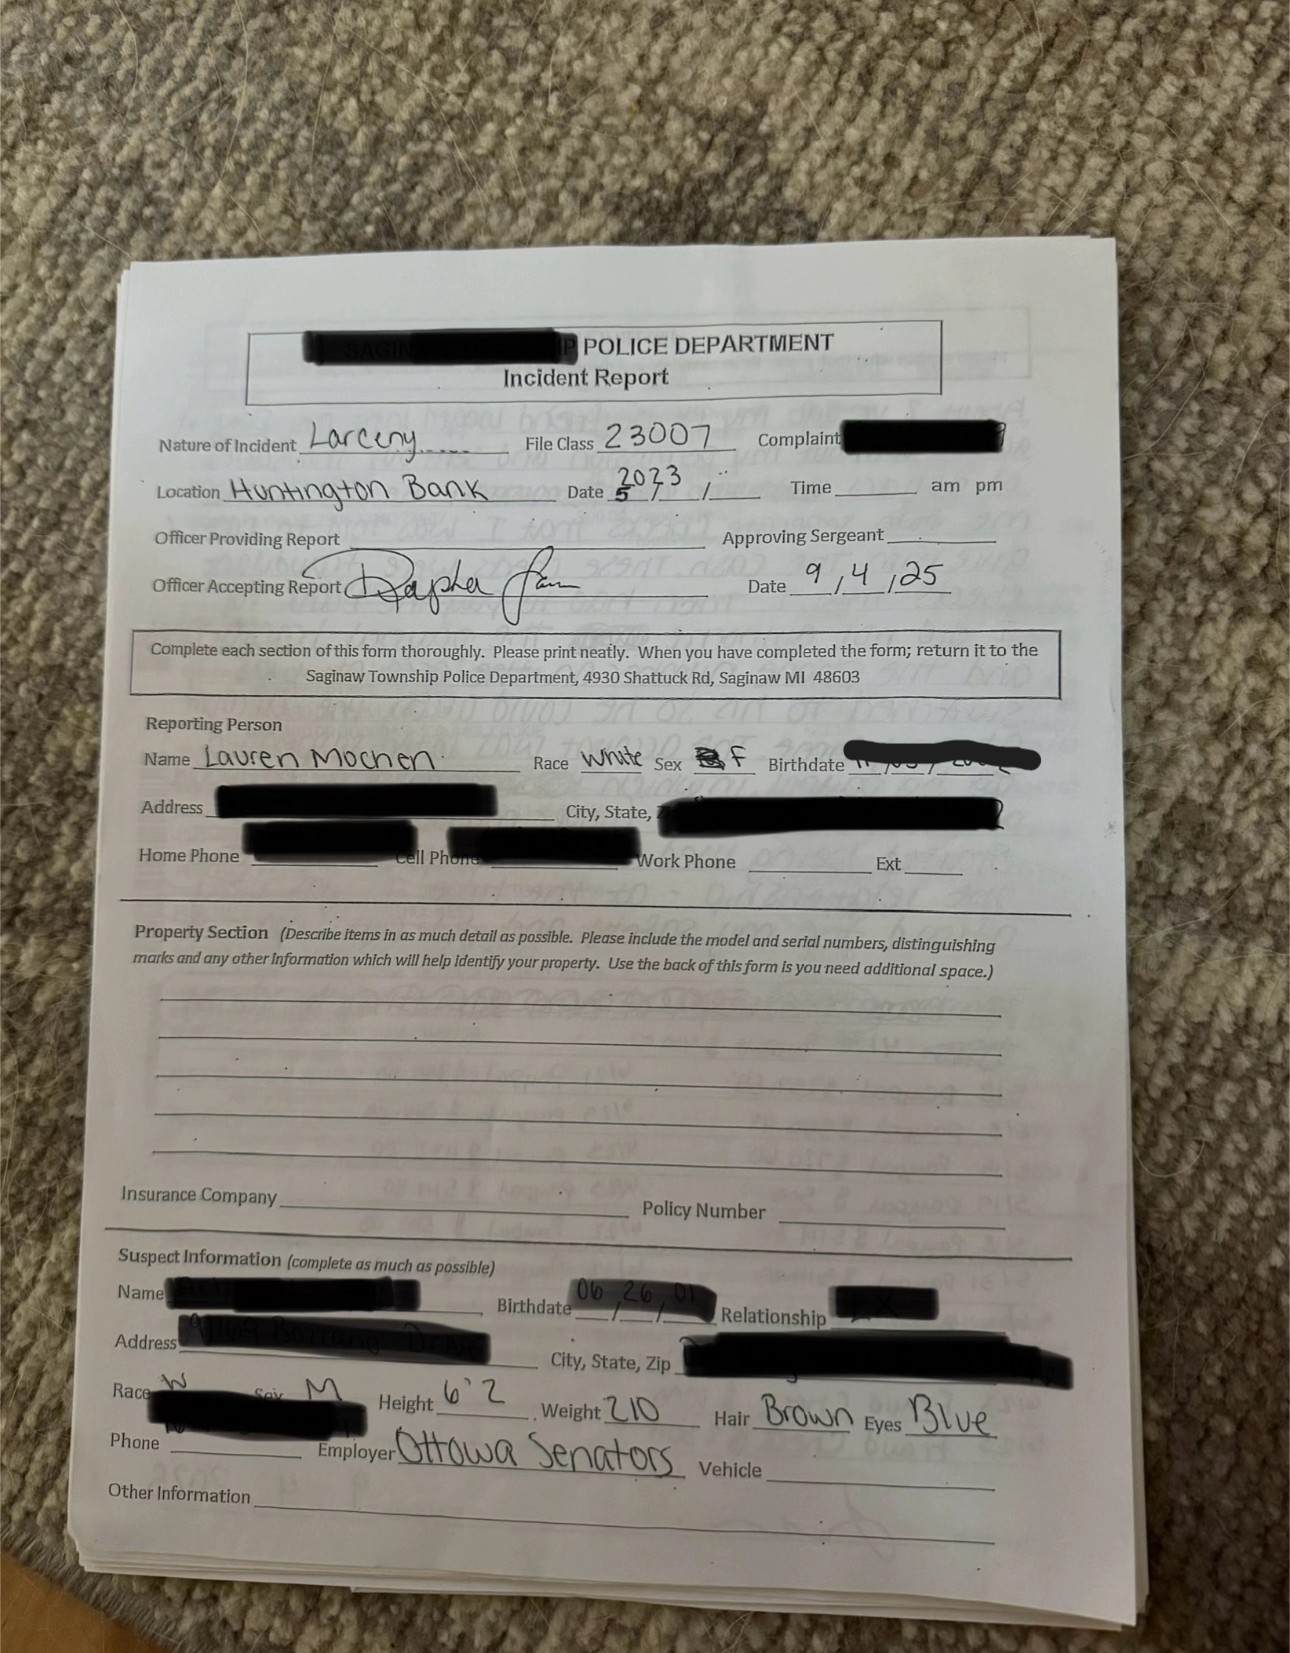 POLICE DEPARTMENT
Incident Report
Nature of Incident Larceny File Class 23007 Complaint
Location Huntington Bank Date 2023 5 / / Time am pm
Officer Providing Report Approving Sergeant
Officer Accepting Report Date 9 / 4 / 25
Complete each section of this form thoroughly. Please print neatly. When you have completed the form; return it to the
Saginaw Township Police Department, 4930 Shattuck Rd, Saginaw MI 48603
Reporting Person
Name Lauren Mochen Race White Sex F Birthdate
Address City, State,
Home Phone Cell Phone Work Phone Ext
Property Section (Describe items in as much detail as possible. Please include the model and serial numbers, distinguishing
marks and any other information which will help identify your property. Use the back of this form is you need additional space.)
Insurance Company Policy Number
Suspect Information (complete as much as possible)
Name Birthdate Relationship
Address City, State, Zip
Race W Sex M Height 6'2 Weight 210 Hair Brown Eyes Blue
Phone Employer Ottowa Senators Vehicle
Other Information